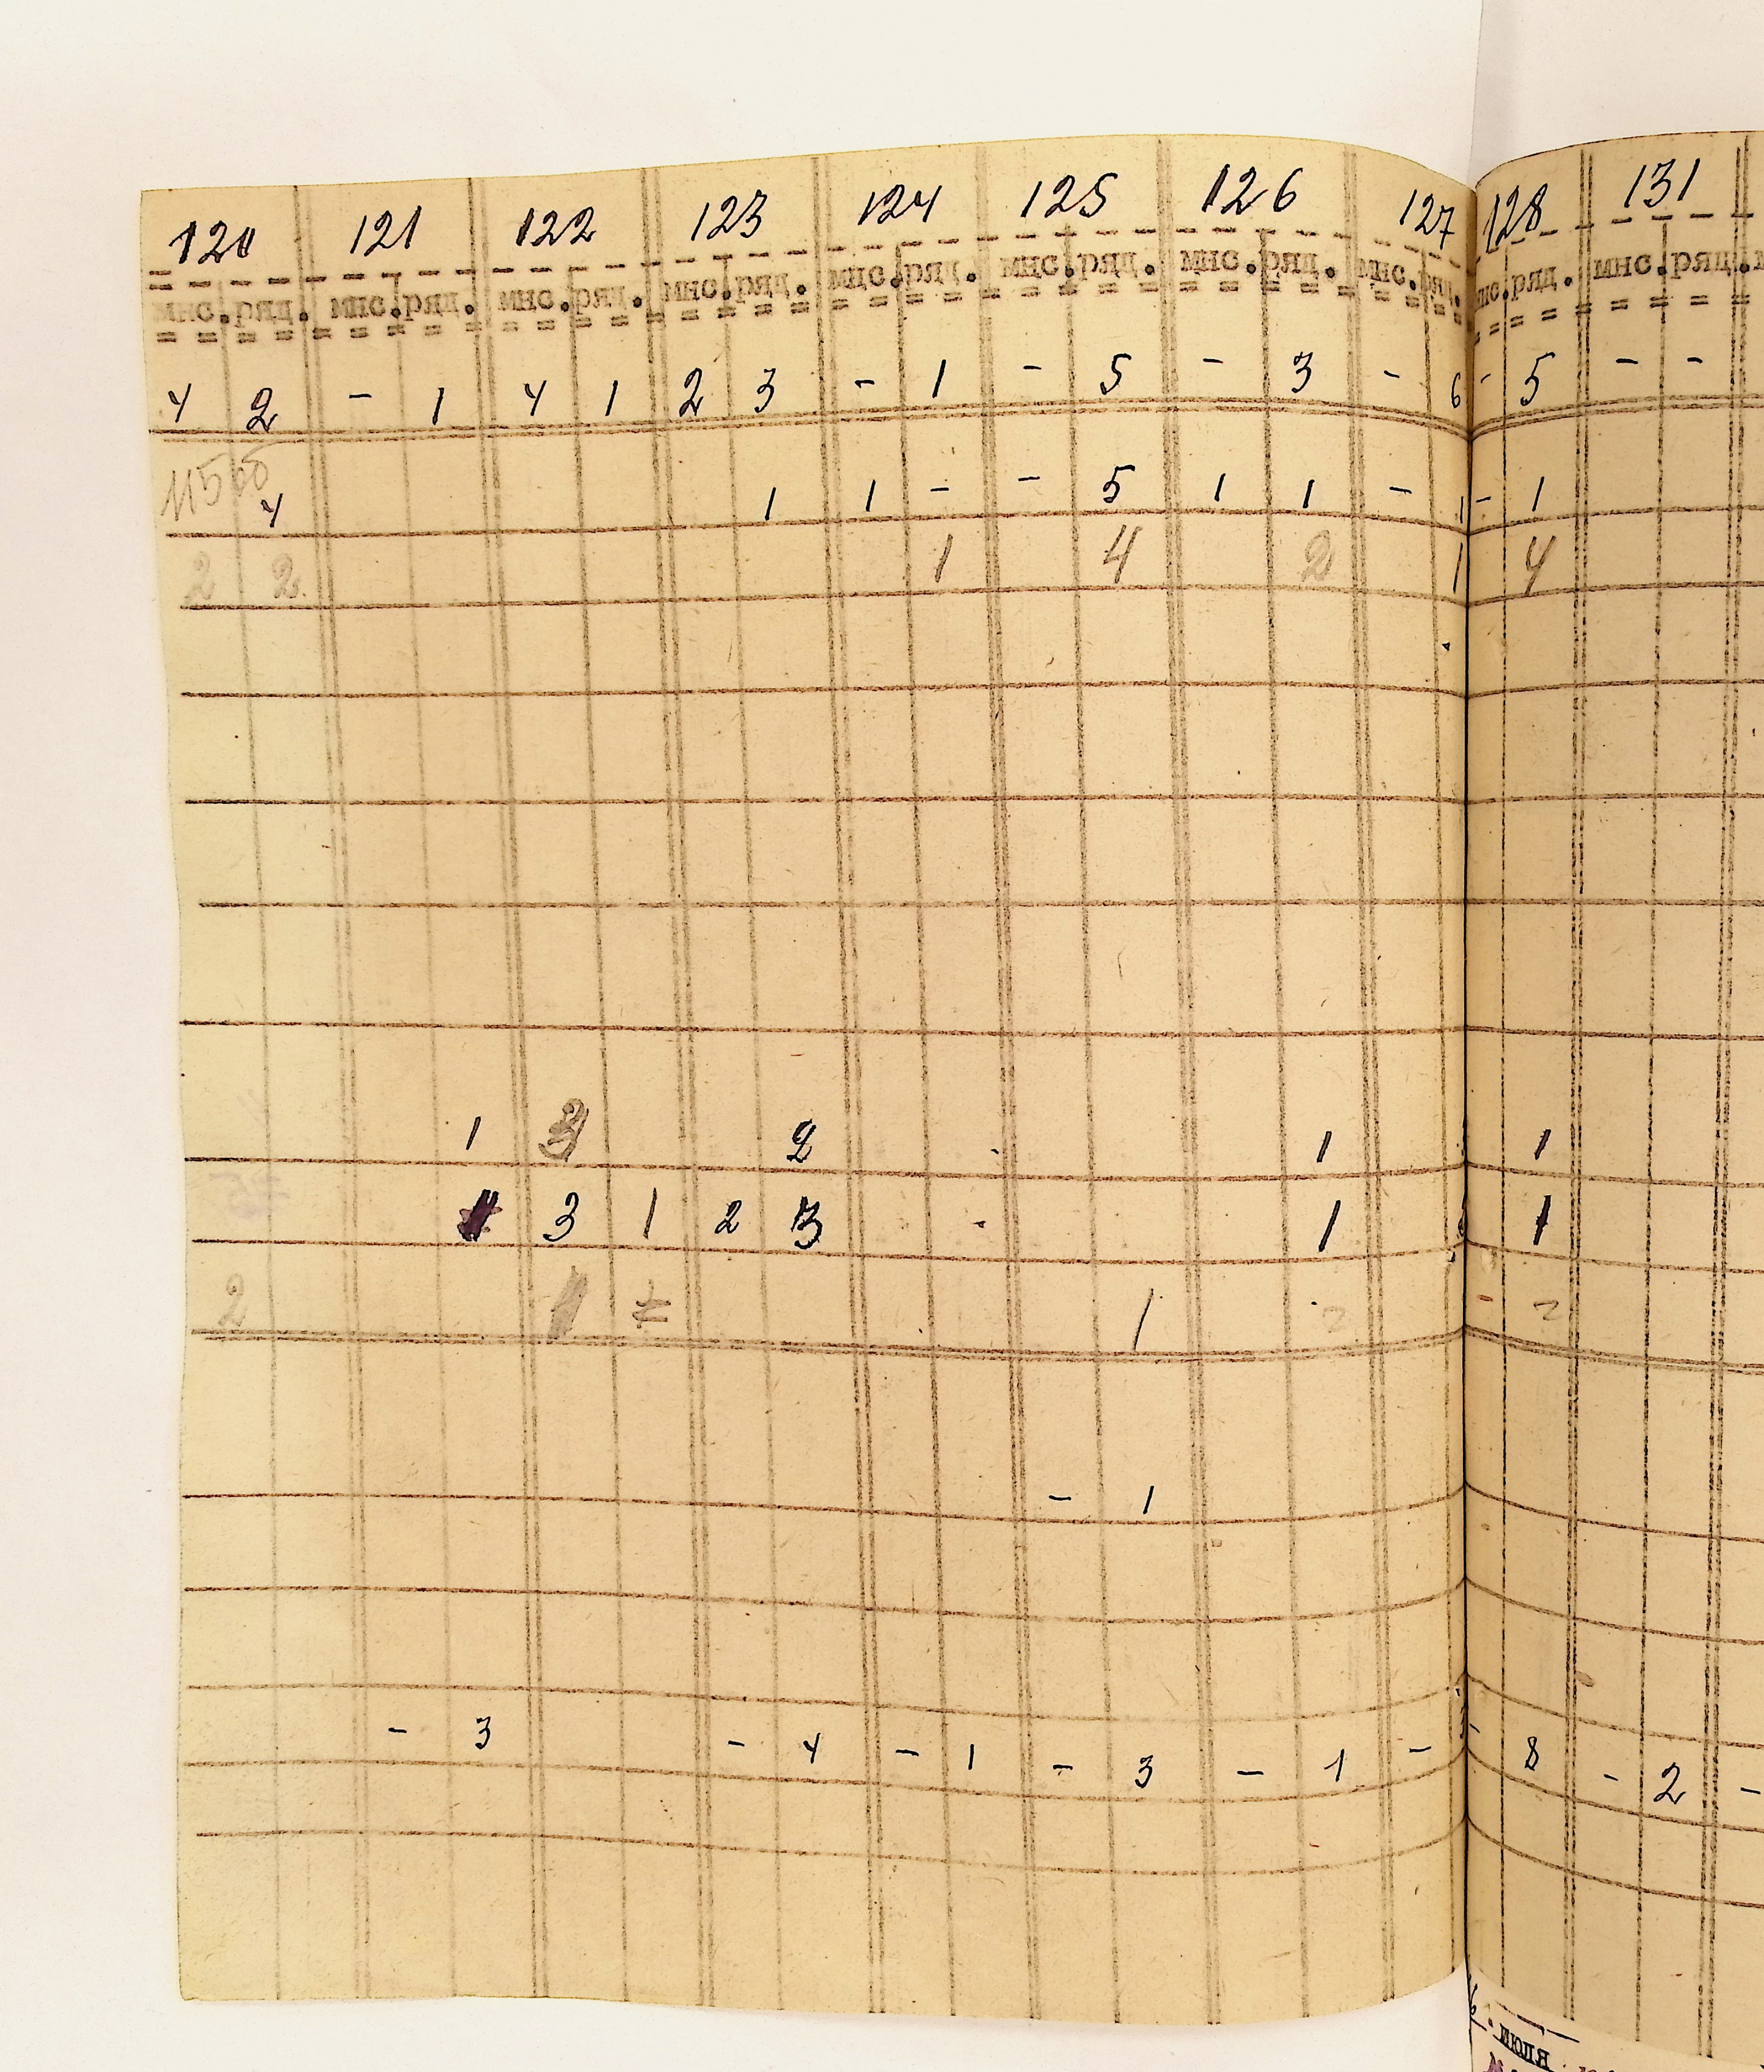 120 121 122 123 124 125 126 127 128 131
мнс. ряд. мнс. ряд. мнс. ряд. мнс. ряд. мнс. ряд. мнс. ряд. мнс. ряд. мнс. ряд. мнс. ряд. мнс. ряд.
4 2 - 1 4 1 2 3 - 1 - 5 - 3 - 6 - 5 - -
4 1 1 - - 5 1 1 - 1 - 1
2 2 1 4 2 1 4
1 3 2 1 1
3 1 2 3 1 1
2 1 2 2
- 1
- 3 - 4 - 1 - 3 - 1 - - 8 - 2 -
июля